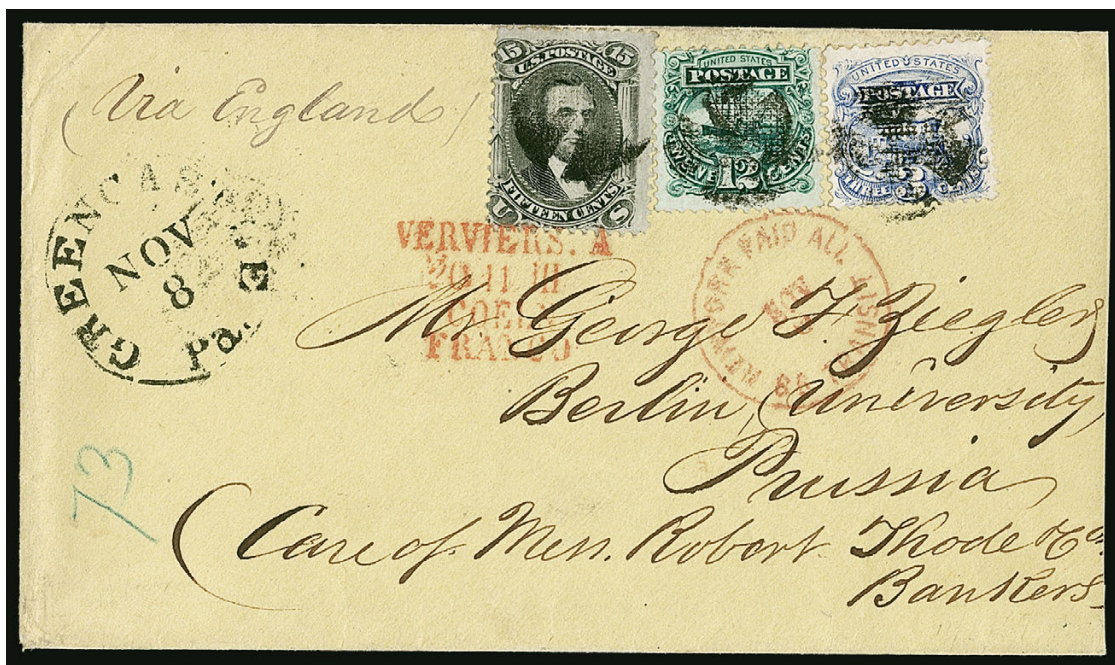 (Via England)
15 15
U.S. POSTAGE
FIFTEEN CENTS
U S
UNITED STATES
POSTAGE
TWELVE 12 CENTS
UNITED STATES
POSTAGE
THREE 3 CENTS
GREENCAS
NOV
8
Pa.
VERVIERS. A
11 III
COELN
FRANCO
PAID ALL
Mr George F. Ziegler
Berlin, (University)
Prussia
73
(Care of Mess. Robert Thode & Co.
Bankers